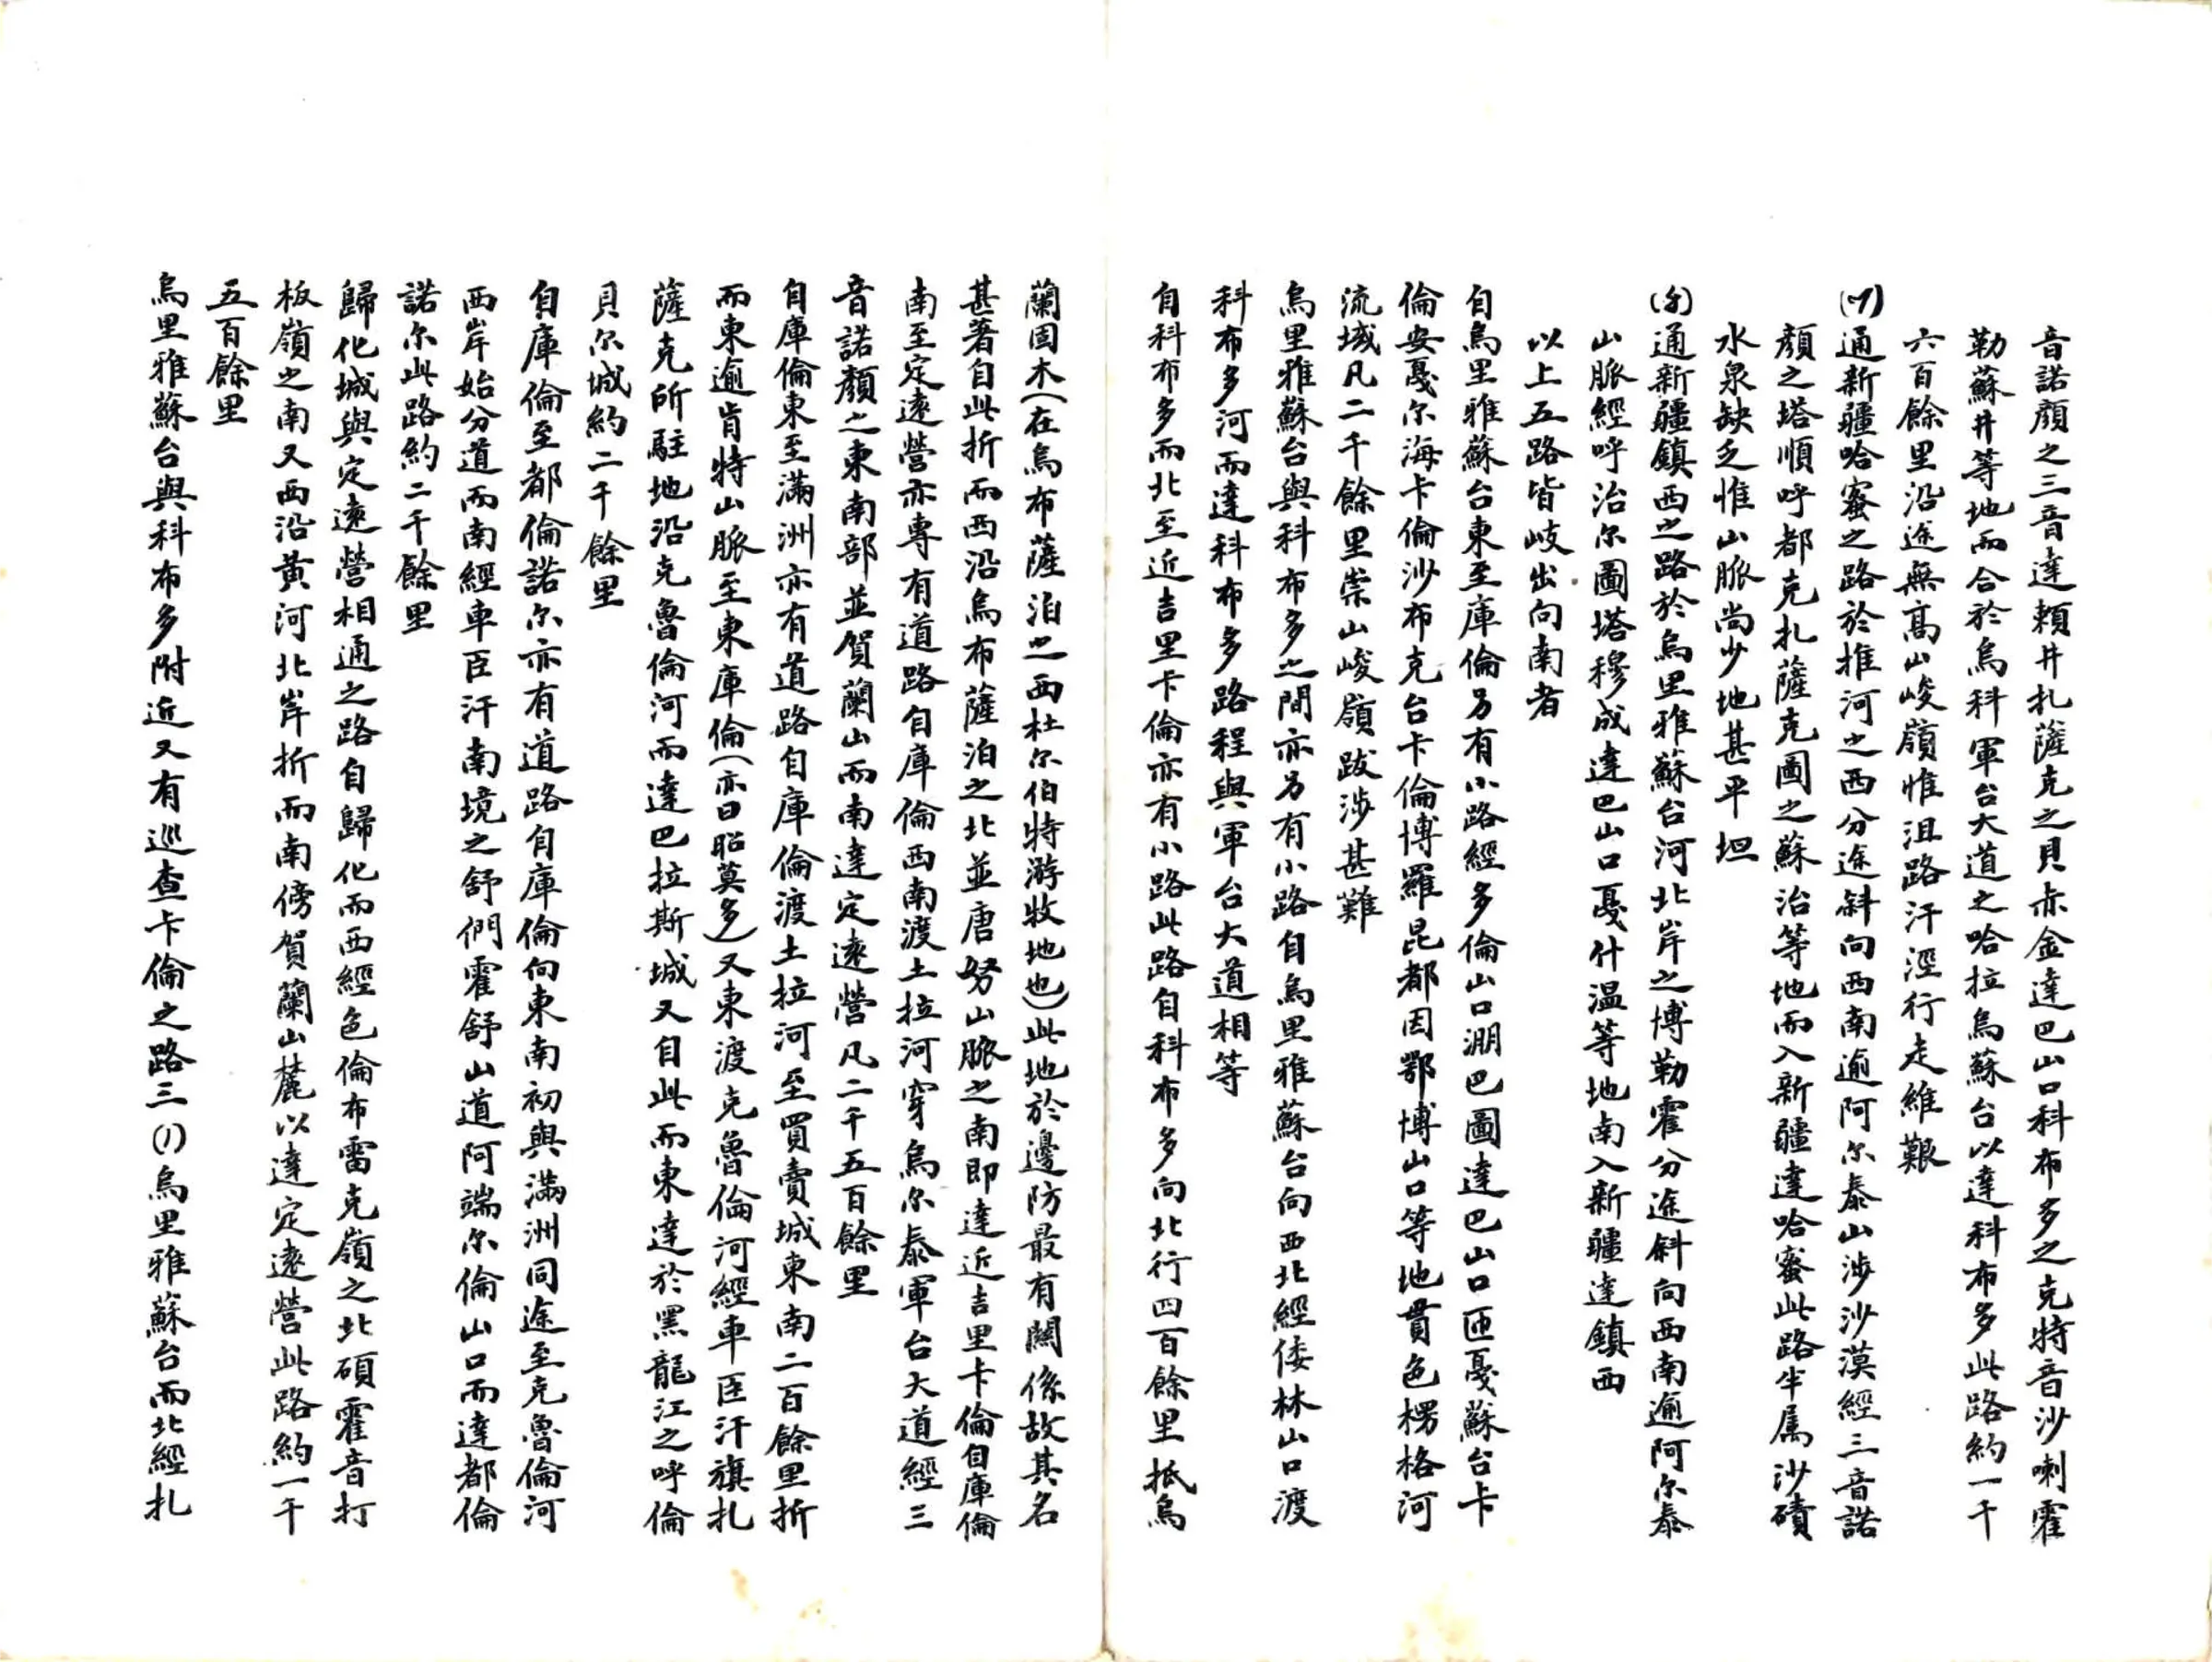 音諾顏之三音達賴井扎薩克之貝赤金達巴山口科布多之克特音沙喇霍
勒蘇井等地而合於烏科軍台大道之哈拉烏蘇台以達科布多此路約一千
六百餘里沿途無高山峻嶺惟沮路汙溼行走維艱
通新疆哈蜜之路於推河之西分途斜向西南逾阿尔泰山涉沙漠經三音諾
顏之塔順呼都克扎薩克圖之蘇治等地而入新疆達哈蜜此路半属沙磧
水泉缺乏惟山脈尚少地甚平坦
通新疆鎮西之路於烏里雅蘇台河北岸之博勒霍分途斜向西南逾阿尔泰
山脈經呼治尔圖塔穆成達巴山口戞什温等地南入新疆達鎮西
以上五路皆岐出向南者
自烏里雅蘇台東至庫倫另有小路經多倫山口淜巴圖達巴山口匝戞蘇台卡
倫安戞尔海卡倫沙布克台卡倫博羅昆都因鄂博山口等地貫色楞格河
流域凡二千餘里崇山峻嶺跋涉甚難
烏里雅蘇台與科布多之間亦另有小路自烏里雅蘇台向西北經倭林山口渡
科布多河而達科布多路程與軍台大道相等
自科布多而北至近吉里卡倫亦有小路此路自科布多向北行四百餘里抵烏
蘭固木(在烏布薩泊之西杜尔伯特游牧地也)此地於邊防最有關係故其名
甚著自此折而西沿烏布薩泊之北並唐努山脈之南即達近吉里卡倫自庫倫
南至定遠營亦專有道路自庫倫西南渡土拉河穿烏尔泰軍台大道經三
音諾顏之東南部並賀蘭山而南達定遠營凡二千五百餘里
自庫倫東至滿洲亦有道路自庫倫渡土拉河至買賣城東南二百餘里折
而東逾肯特山脈至東庫倫(亦曰昭莫多)又東渡克魯倫河經車臣汗旗扎
薩克所駐地沿克魯倫河而達巴拉斯城又自此而東達於黑龍江之呼倫
貝尔城約二千餘里
自庫倫至都倫諾尔亦有道路自庫倫向東南初與滿洲同途至克魯倫河
西岸始分道而南經車臣汗南境之舒們霍舒山道阿端尔倫山口而達都倫
諾尔此路約二千餘里
歸化城與定遠營相通之路自歸化而西經色倫布雷克嶺之北碩霍音打
板嶺之南又西沿黃河北岸折而南傍賀蘭山麓以達定遠營此路約一千
五百餘里
烏里雅蘇台與科布多附近又有巡查卡倫之路三(1)烏里雅蘇台而北經扎